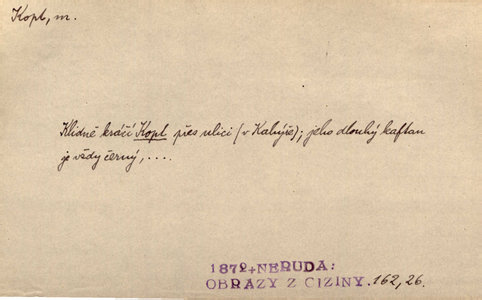 Kopt, m.
Klidně kráčí Kopt přes ulici (v Kahýře); jeho dlouhý kaftan
je vždy černý, ....
1872+NERUDA:
OBRAZY Z CIZINY. 162, 26.